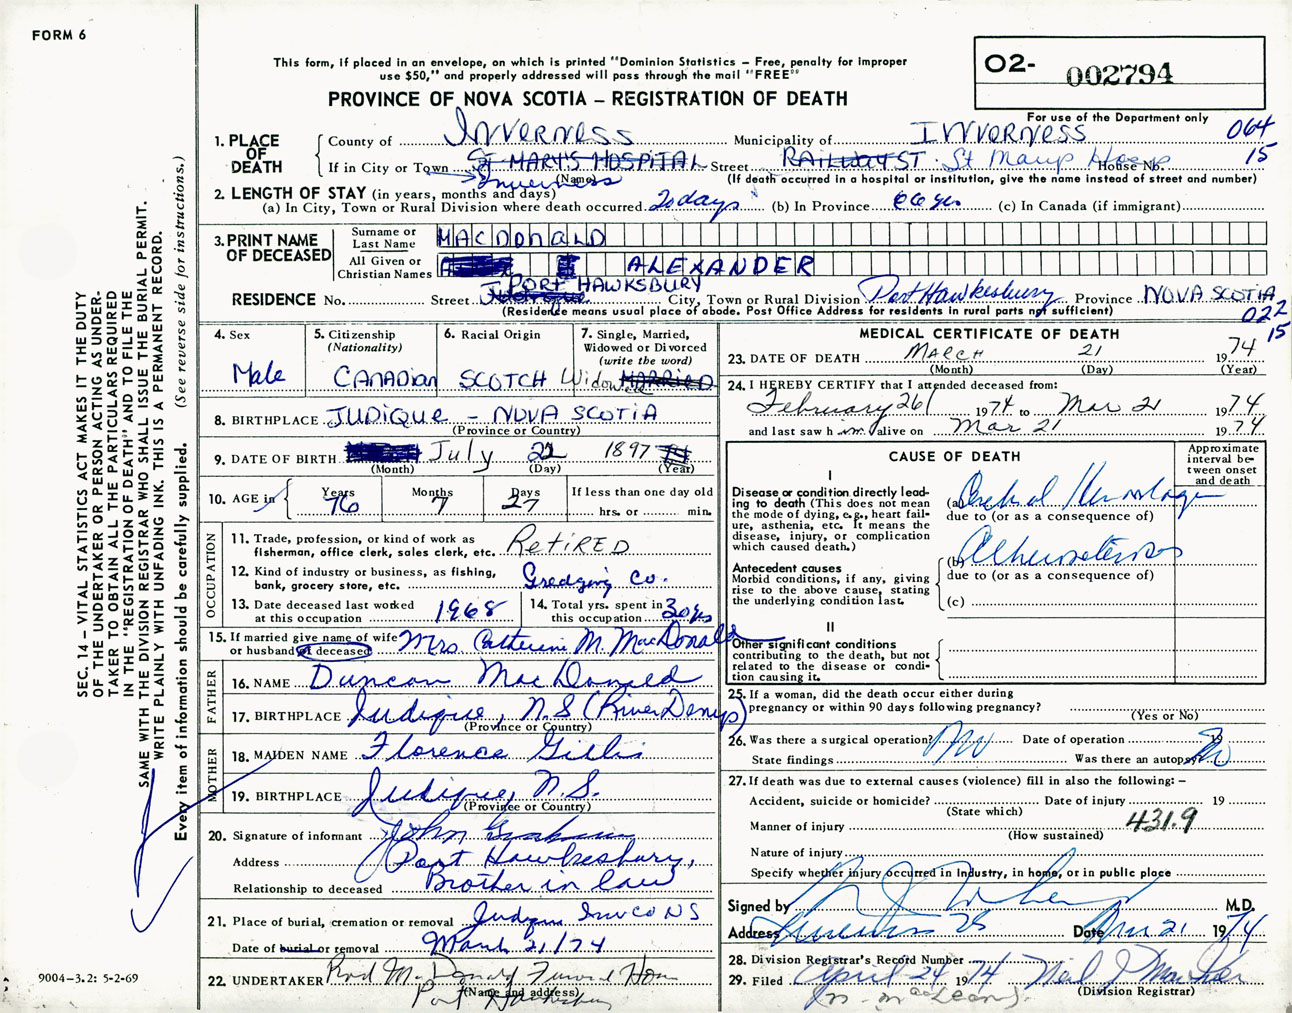 FORM 6
This form, if placed in an envelope, on which is printed "Dominion Statistics – Free, penalty for improper
use $50," and properly addressed will pass through the mail "FREE"
PROVINCE OF NOVA SCOTIA – REGISTRATION OF DEATH
O2- 002794
For use of the Department only
064
15
1. PLACE OF DEATH
County of INVERNESS Municipality of INVERNESS
If in City or Town ST MARY'S HOSPITAL Street RAILWAY ST. St Marys Hosp House No.
Inverness (Name) (If death occurred in a hospital or institution, give the name instead of street and number)
2. LENGTH OF STAY (in years, months and days)
(a) In City, Town or Rural Division where death occurred 20 days (b) In Province (c) In Canada (if immigrant)
3. PRINT NAME OF DECEASED
Surname or Last Name MACDONALD
All Given or Christian Names ALEXANDER
PORT HAWKSBURY
RESIDENCE No. Street City, Town or Rural Division Port Hawkesbury Province NOVA SCOTIA
(Residence means usual place of abode. Post Office Address for residents in rural parts not sufficient)
022
15
4. Sex
Male
5. Citizenship
(Nationality)
CANADIAN
6. Racial Origin
SCOTCH
7. Single, Married,
Widowed or Divorced
(write the word)
Widowed MARRIED
8. BIRTHPLACE JUDIQUE – NOVA SCOTIA
(Province or Country)
9. DATE OF BIRTH July 22 1897
(Month) (Day) (Year)
10. AGE in Years 76 Months 7 Days 27 If less than one day old
hrs. or min.
OCCUPATION
11. Trade, profession, or kind of work as
fisherman, office clerk, sales clerk, etc. RETIRED
12. Kind of industry or business, as fishing,
bank, grocery store, etc. Gredging Co.
13. Date deceased last worked
at this occupation 1968
14. Total yrs. spent in
this occupation 30 yrs
15. If married give name of wife
or husband of deceased Mrs. Catherine M. MacDonald
FATHER
16. NAME Duncan MacDonald
17. BIRTHPLACE Judique, N.S (River Denys)
(Province or Country)
MOTHER
18. MAIDEN NAME Florence Gillis
19. BIRTHPLACE Judique, N.S.
(Province or Country)
20. Signature of informant John Graham
Address Port Hawkesbury,
Relationship to deceased Brother in law
21. Place of burial, cremation or removal Judique Inv Co NS
Date of burial or removal March 21/74
22. UNDERTAKER Rod MacDonald Funeral Home
(Name and address)
Port Hawkesbury
MEDICAL CERTIFICATE OF DEATH
23. DATE OF DEATH MARCH 21 1974
(Month) (Day) (Year)
24. I HEREBY CERTIFY that I attended deceased from:
February 26 1974 to Mar 21 1974
and last saw him alive on Mar 21 1974
CAUSE OF DEATH
Approximate
interval be-
tween onset
and death
I
Disease or condition directly lead-
ing to death (This does not mean
the mode of dying, e.g., heart fail-
ure, asthenia, etc. It means the
disease, injury, or complication
which caused death.)
(a)
due to (or as a consequence of)
(b)
due to (or as a consequence of)
(c)
Antecedent causes
Morbid conditions, if any, giving
rise to the above cause, stating
the underlying condition last.
II
Other significant conditions
contributing to the death, but not
related to the disease or condi-
tion causing it.
25. If a woman, did the death occur either during
pregnancy or within 90 days following pregnancy?
(Yes or No)
26. Was there a surgical operation? No Date of operation 19
State findings Was there an autopsy? No
27. If death was due to external causes (violence) fill in also the following: –
Accident, suicide or homicide? Date of injury 19
(State which)
Manner of injury 431.9
(How sustained)
Nature of injury
Specify whether injury occurred in industry, in home, or in public place
Signed by M.D.
Address Inverness NS Date Mar 21 1974
28. Division Registrar's Record Number
29. Filed April 24 1974
(Division Registrar)
(N. MacLean).
SEC. 14 – VITAL STATISTICS ACT MAKES IT THE DUTY
OF THE UNDERTAKER OR PERSON ACTING AS UNDER-
TAKER TO OBTAIN ALL THE PARTICULARS REQUIRED
IN THE "REGISTRATION OF DEATH" AND TO FILE THE
SAME WITH THE DIVISION REGISTRAR WHO SHALL ISSUE THE BURIAL PERMIT.
WRITE PLAINLY WITH UNFADING INK. THIS IS A PERMANENT RECORD.
Every item of information should be carefully supplied. (See reverse side for instructions.)
9004–3.2: 5-2-69